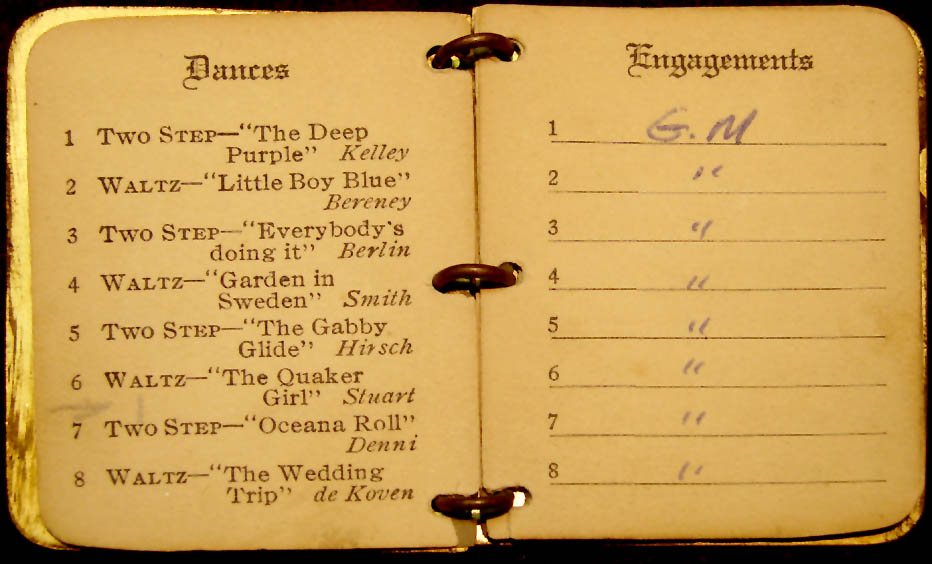 Dances
1 Two Step—"The Deep
Purple" Kelley
2 Waltz—"Little Boy Blue"
Bereney
3 Two Step—"Everybody's
doing it" Berlin
4 Waltz—"Garden in
Sweden" Smith
5 Two Step—"The Gabby
Glide" Hirsch
6 Waltz—"The Quaker
Girl" Stuart
7 Two Step—"Oceana Roll"
Denni
8 Waltz—"The Wedding
Trip" de Koven
Engagements
1 G. M
2 "
3 "
4 "
5 "
6 "
7 "
8 "